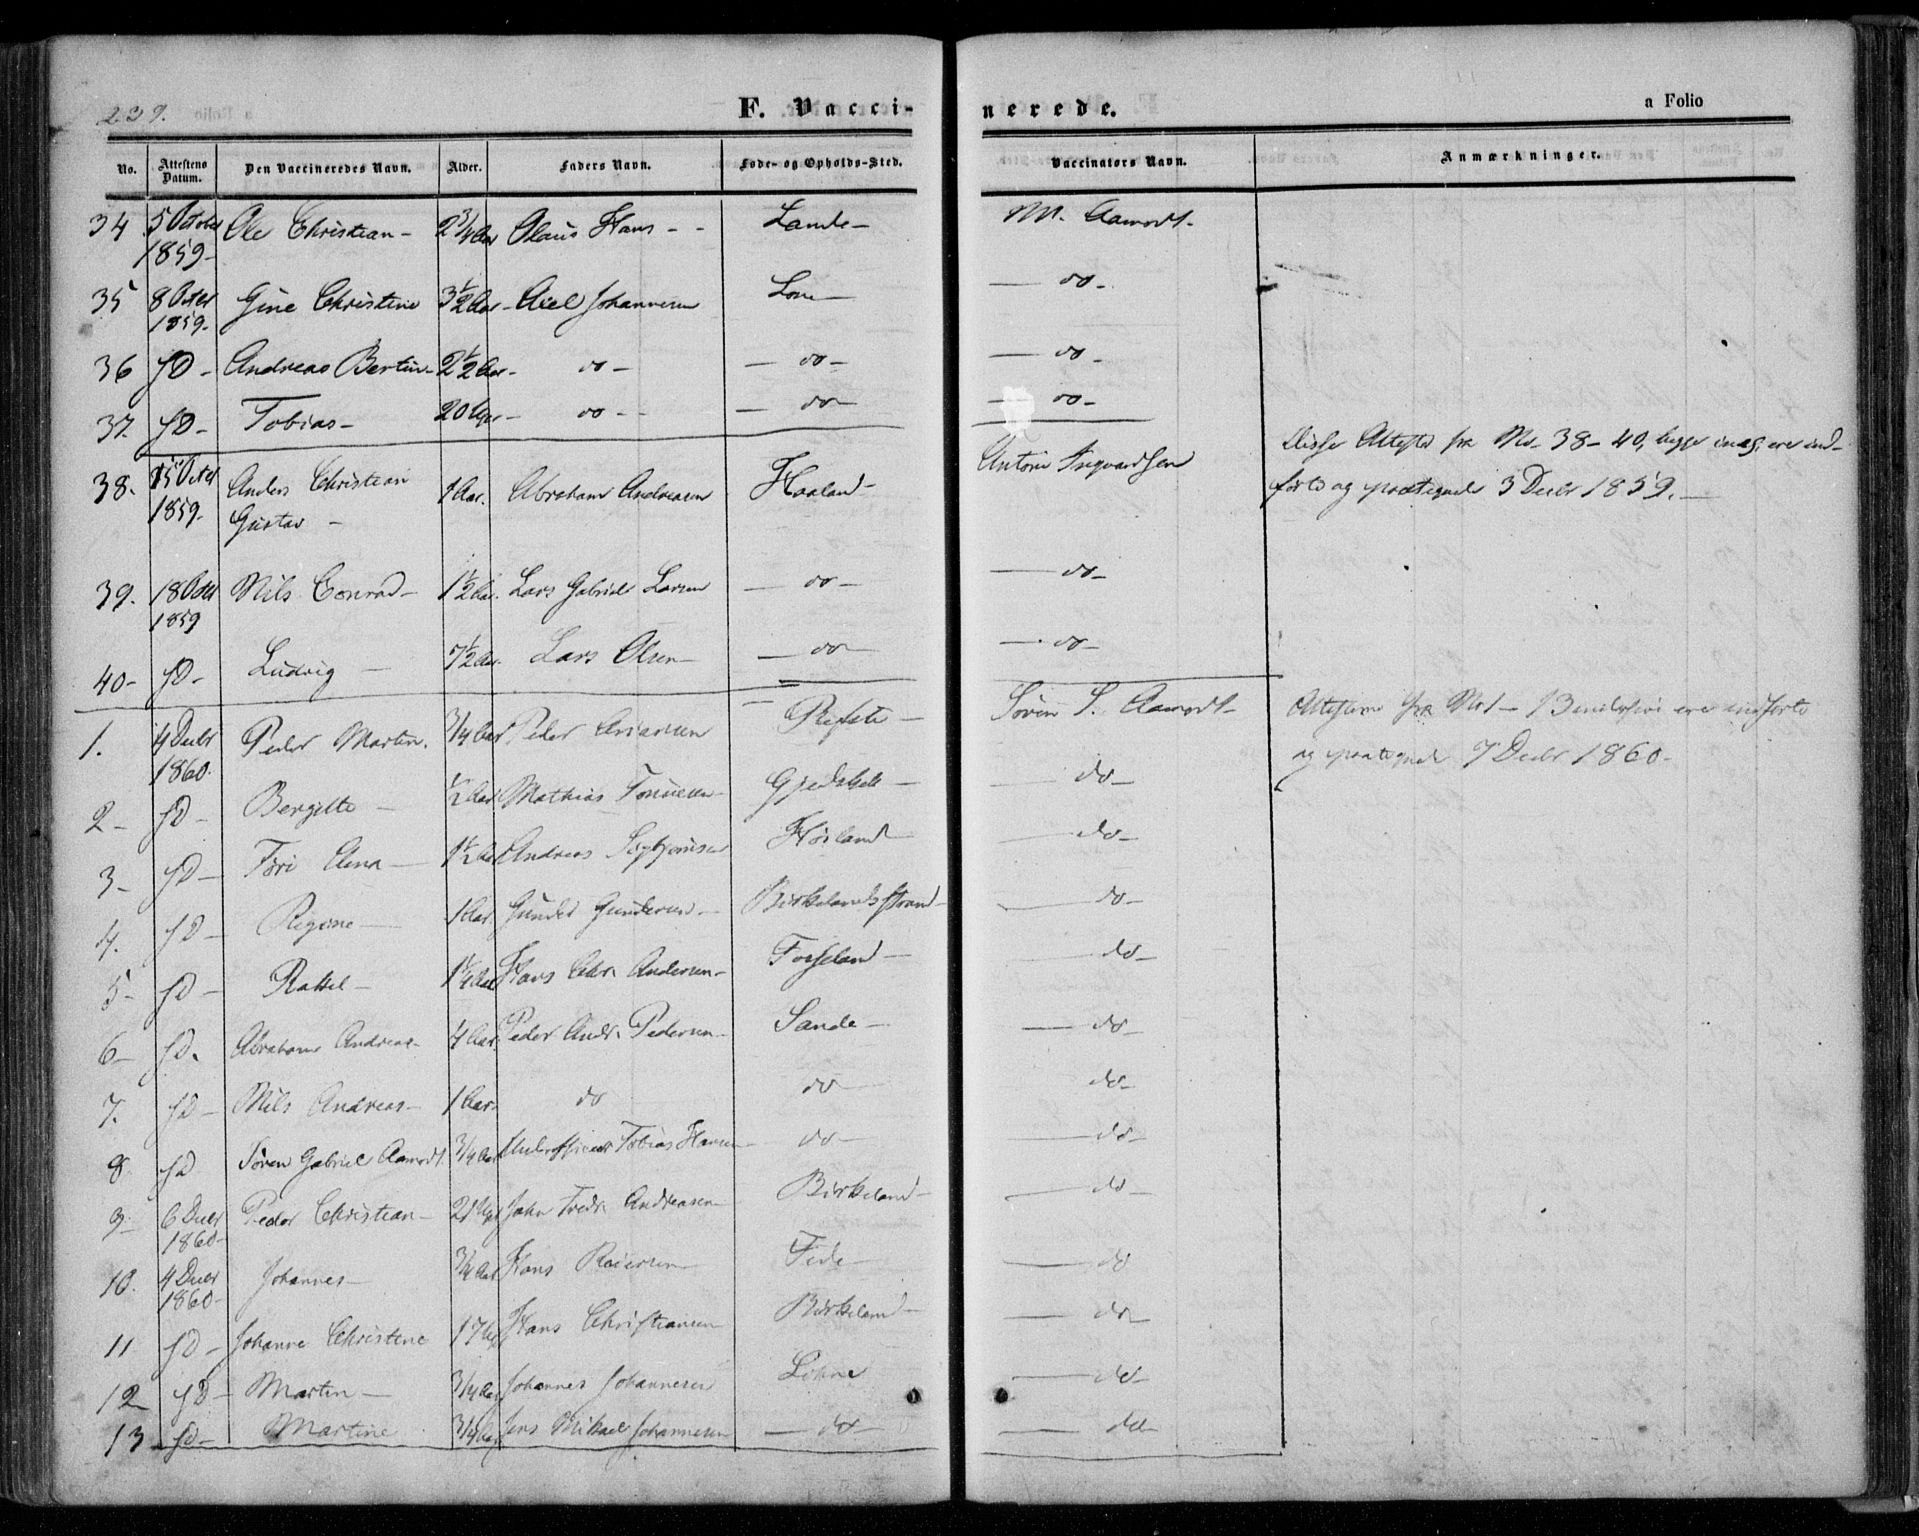 239.
F. Vacci-
nerede.
a Folio
No. Attestens Datum. Den Vaccineredes Navn. Alder. Faders Navn. Føde- og Opholds-Sted. Vaccinators Navn. Anmærkninger.
34 5 October 1859- Ole Christian- 2 3/4 Aar Olaus Hans - - Lande- M. Aamodt-
35 8 Octbr 1859- Gine Christine 3 1/2 Aar- Axel Johannesen - do-
36 sD- Andreas Bertin- 2 1/2 Aar- do- - do- - do-
37. sD- Tobias- 20 - do-- - do- - do-
38. 15 Octbr 1859- Anders Christian Gustav - 1 Aar. Abraham Andreasen Haaland- Antoni Ingvardsen Disse Attester fra No. 38-40, begge incl., ere ind-
førte og paategnede 3 Decbr 1859.-
39. 18 Octbr 1859 Nils Conrad- 1 1/2 Aar. Lars Gabriel Larsen - do- - do-
40- sD- Ludvig - 7 1/2 Aar. Lars Olsen- - do- - do-
1. 4 Decbr 1860. Peder Martin. 3/4 Aar Peder - Søren S. Aamodt- Attesterne fra No 1 - 13 inclusive ere indførte
og paategnede 7 Decbr 1860-
2- sD- Bergitte - 1/2 Aar Mathias Tønnesen- - do-
3- sD- - 1 1/2 Aar Andreas - do-
4. sD- Regine- 1 Aar. Gunder Gundersen- Birkelandsstrand- - do-
5- sD- Rakkel- Hans Chr. Andersen- - do-
6- sD. Abraham Andreas- 4 Aar. Peder Andr. Pedersen- Sande- - do-
7. sD- Nils Andreas- 1 Aar- do do - do-
8. sD Søren Gabriel Aamodt. 3/4 Aar Underofficer Tobias Hansen- do- - do-
9- 6 Decbr 1860- Peder Christian- John Fredr. Andreasen- Birkeland- - do-
10. 4 Decbr 1860- Johannes- 3/4 Aar Hans Reiersen- Fede- - do
11 sD- Johanne Christine 17 Hans Christiansen Birkeland- - do-
12 sD- Martin- 3/4 Aar Johannes Johannesen Lohne - do-
13 sD- Martine 3/4 Aar Jens Mikael Johannesen - do- - do-